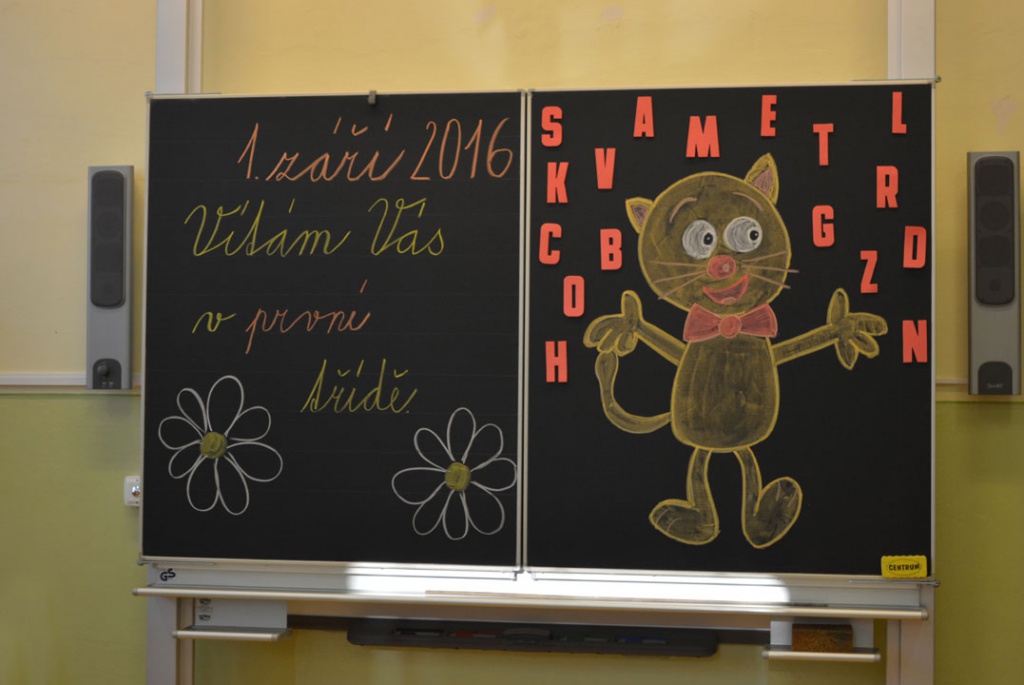 1. září 2016
Vítám Vás
v první
třídě.
S A M E T L
K V R
C B G Z D
O
H N
CENTRUM
GS